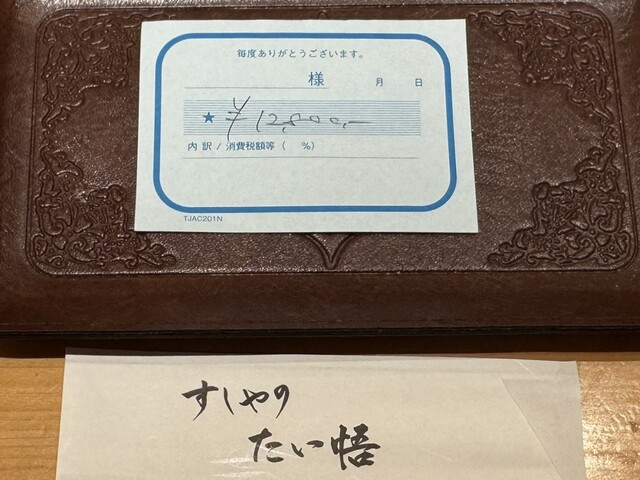 毎度ありがとうございます。
様 月 日
★ ¥12,800,-
内訳/消費税額等( %)
TJAC201N
すしやの
たい悟